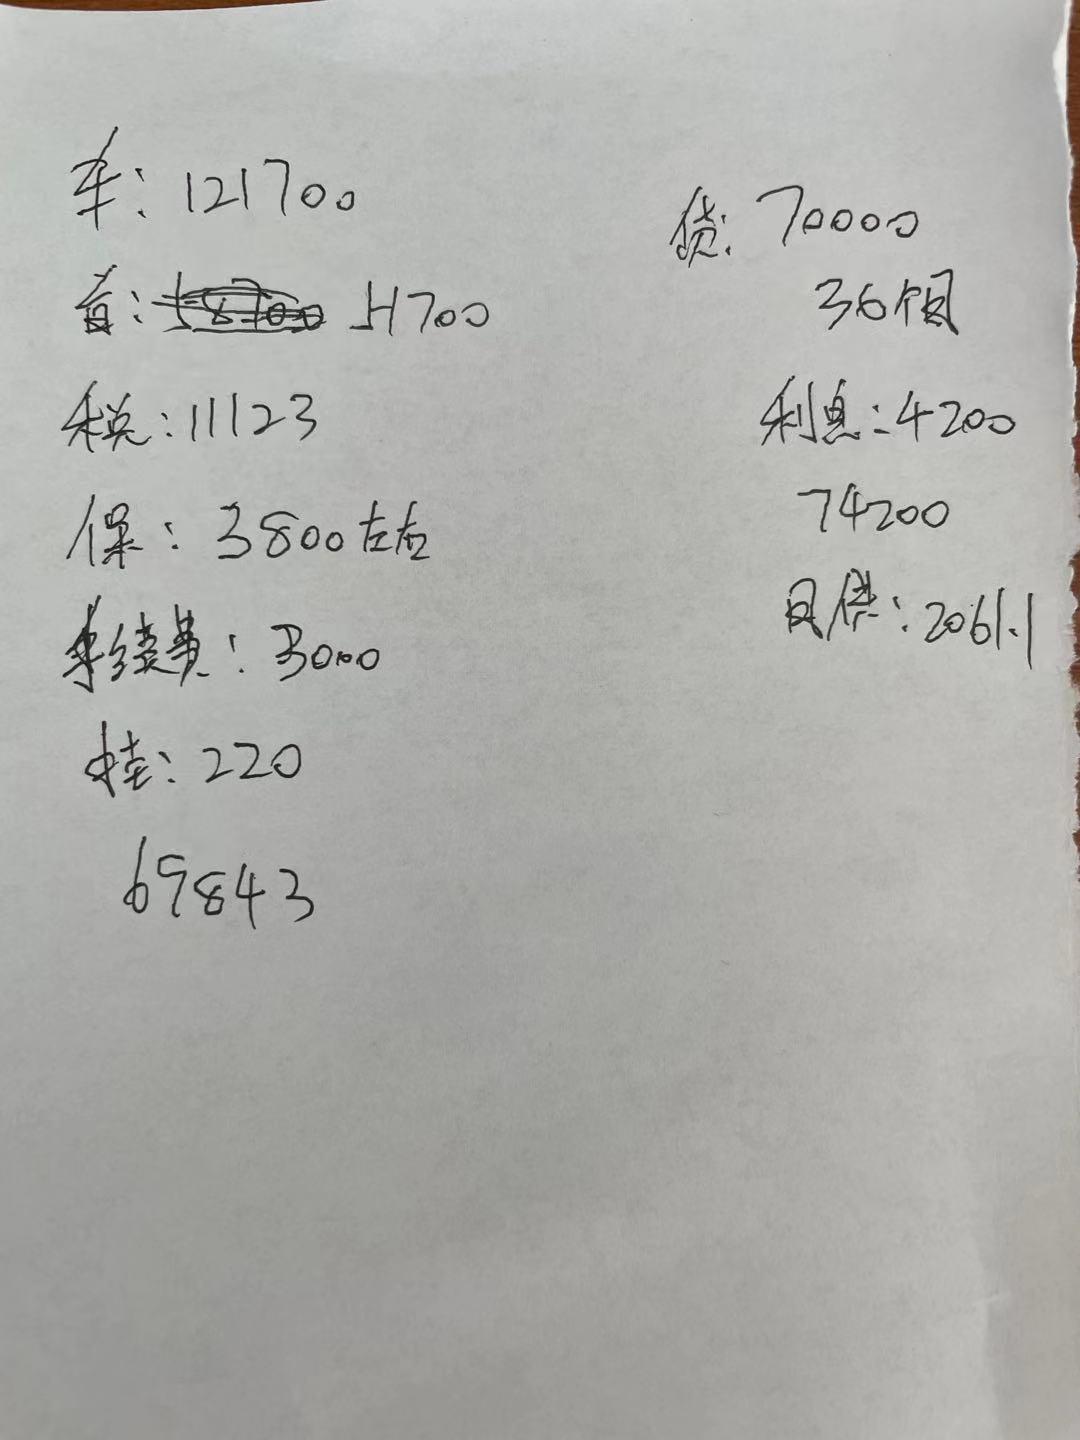 车：121700
首：51700
税：11123
保：3800左右
手续费：3000
挂：220
69843
贷：70000
36个月
利息：4200
74200
月供：2061.1